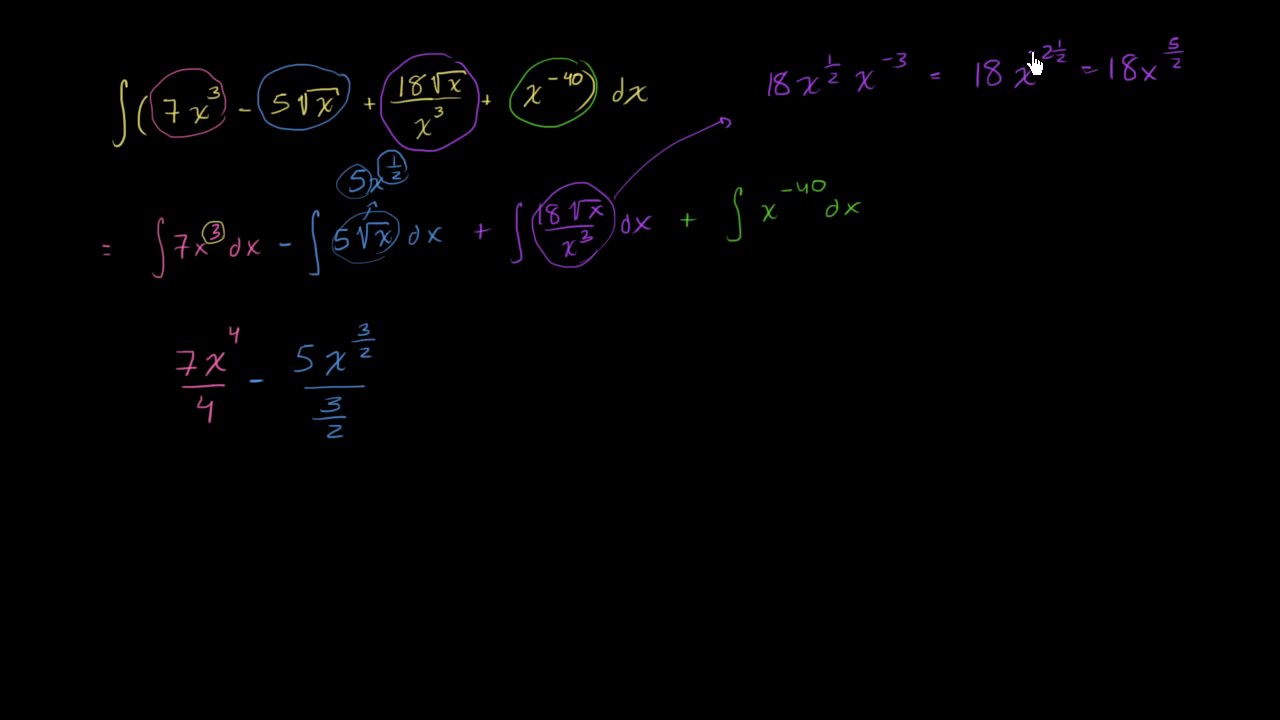 ∫(7x³ - 5√x + 18√x/x³ + x⁻⁴⁰) dx
18x^(1/2) x⁻³ = 18x^(2 1/2) = 18x^(5/2)
5x^(1/2)
= ∫7x³dx - ∫5√x dx + ∫18√x/x³ dx + ∫x⁻⁴⁰dx
7x⁴/4 - 5x^(3/2)/(3/2)